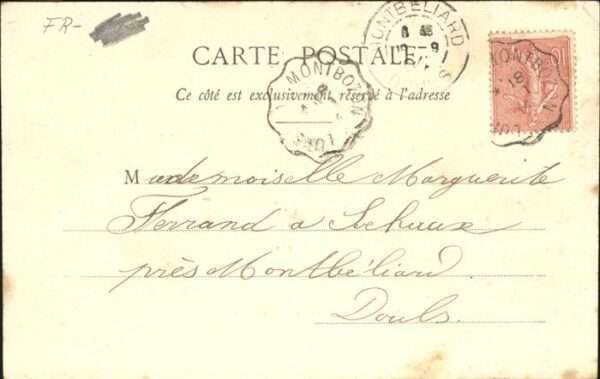 FR-
CARTE POSTALE
Ce côté est exclusivement réservé à l'adresse
MONTBÉLIARD
MONTBOZON
18
MONTBOZON
18
Mademoiselle Marguerite
Ferrand à Sochaux
près Montbéliard
Doubs